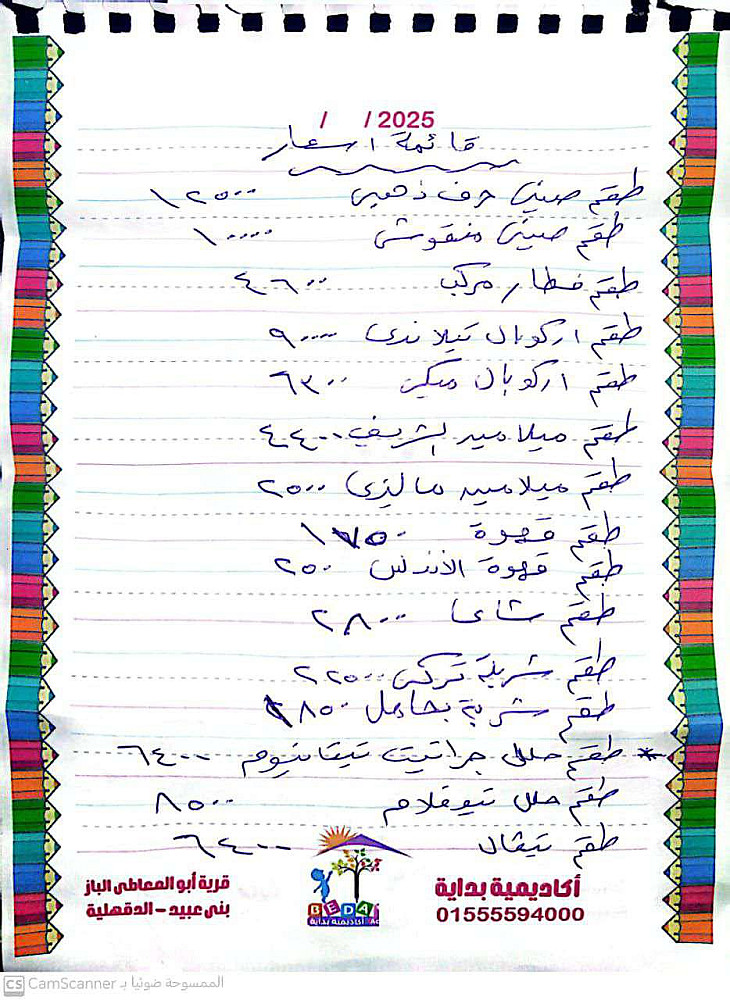 / / 2025
قائمة اسعار
طقم صينى حرف ذهبى ١٢٥٠٠
طقم صينى منقوش ١٠٠٠٠
طقم فطار مركب ٤٦٠٠
طقم اركوبال تيلاندى ٩٠٠٠
طقم اركوبال ٦٣٠٠
طقم ميلامين الشريف ٤٤٠٠
طقم ميلامين ماليزى ٢٥٠٠
طقم قهوة ١٧٥٠
طقم قهوة الأندلس ٢٥٠٠
طقم شاى ٢٨٠٠
طقم شربة تركى ٢٢٥٠٠
طقم شربة بحامل ٨٥٠
* طقم حلل جرانيت تيتانيوم ٦٤٠٠
طقم حلل نيوفلام ٨٥٠٠
طقم تيفال ٦٤٠٠
BEDA
أكاديمية بداية
أكاديمية بداية
01555594000
قرية أبو المعاطى الباز
بنى عبيد - الدقهلية
CS CamScanner الممسوحة ضوئيا بـ